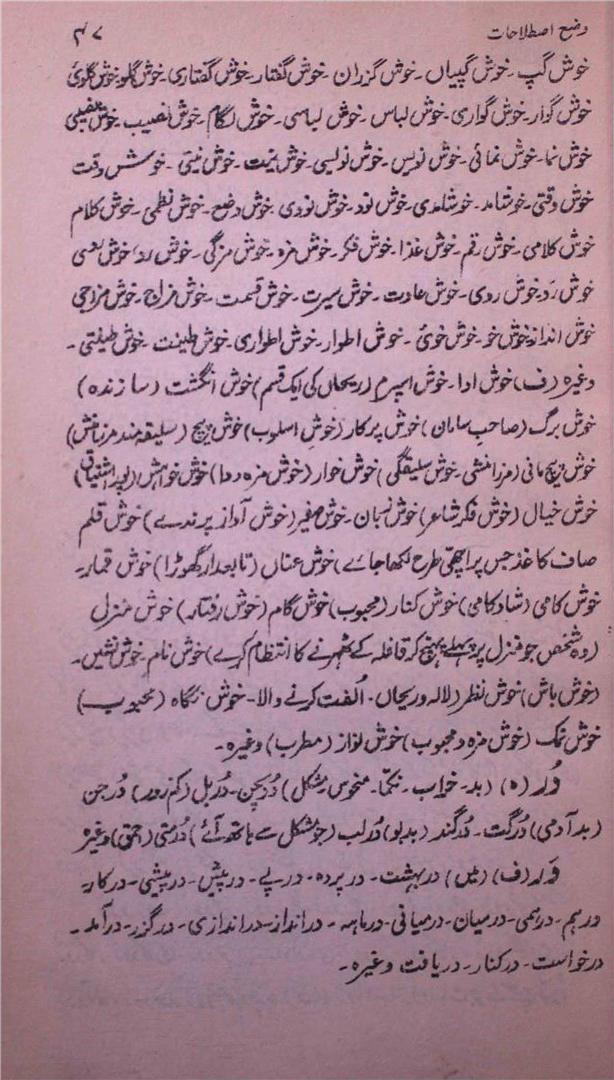 وضع اصطلاحات ۴۷
خوش گپ۔خوش گپیاں۔خوش گزران۔خوش گفتار۔خوش گفتاری۔خوش گلو۔خوش گلوئی
خوش گوار۔خوش گواری۔خوش لباس۔خوش لباسی۔خوش لگام۔خوش نصیب۔خوش نصیبی
خوش نما۔خوش نمائی۔خوش نویس۔خوش نویسی۔خوش نیت۔خوش نیتی۔خوش وقت
خوش وقتی۔خوشامد۔خوشامدی۔خوش نود۔خوش نودی۔خوش وضع۔خوش نظمی۔خوش کلام
خوش کلامی۔خوش رقم۔خوش غذا۔خوش فکر۔خوش مزہ۔خوش مزگی۔
خوش رَو۔خوش روی۔خوش عادت۔خوش سیرت۔خوش قسمت۔خوش مزاج۔خوش مزاجی
خوش انداز۔خوش خو۔خوش خوئی۔خوش اطوار۔خوش اطواری۔خوش طینت۔خوش طینتی۔
وغیرہ (ف) خوش ادا۔خوش اسپرم (ریحاں کی ایک قسم) خوش انگشت (سازندہ)
خوش برگ (صاحب سامان) خوش پرکار (خوش اسلوب) خوش پیچ (سلیقہ مند مرزا منش)
خوش پیچ مانی (مرزا منشی۔خوش سلیقگی) خوش خوار (خوش مزہ دوا) خوش خواہش (پر اشتیاق)
خوش خیال (خوش فکر شاعر) خوش زبان۔خوش صفیر (خوش آواز پرندے) خوش قلم
صاف کاغذ جس پر اچھی طرح لکھا جائے) خوش عناں (تابعدار گھوڑا) خوش قمار۔
خوش کامی (شاد کامی) خوش کنار (محبوب) خوش گام (خوش رفتار) خوش منزل
(وہ شخص جو منزل پر پہلے پہنچ کر قافلہ کے ٹھہرنے کا انتظام کرے) خوش نام۔خوش نشیں۔
(خوش باش) خوش نظر (لالہ و ریحاں۔الفت کرنے والا۔خوش نگاہ (محبوب)
خوش نمک (خوش مزہ و محبوب) خوش نواز (مطرب) وغیرہ۔
دُر (ہ) (بد۔خراب۔نکمّا۔منحوس۔مشکل) دُربچن۔دُربل (کمزور) دُرجن
(بد آدمی) دُرگت۔دُرگند (بدبو) دُرلب (جو مشکل سے ہاتھ آئے) دُرمتی (احمق) وغیرہ
دَر (ف) (میں) دربہشت۔در پردہ۔درپے۔درپیش۔درپیشی۔درکار۔
درہم۔درہمی۔درمیان۔درمیانی۔درماہہ۔درانداز۔دراندازی۔درگزر۔درآمد۔
درخواست۔درکنار۔دریافت وغیرہ۔